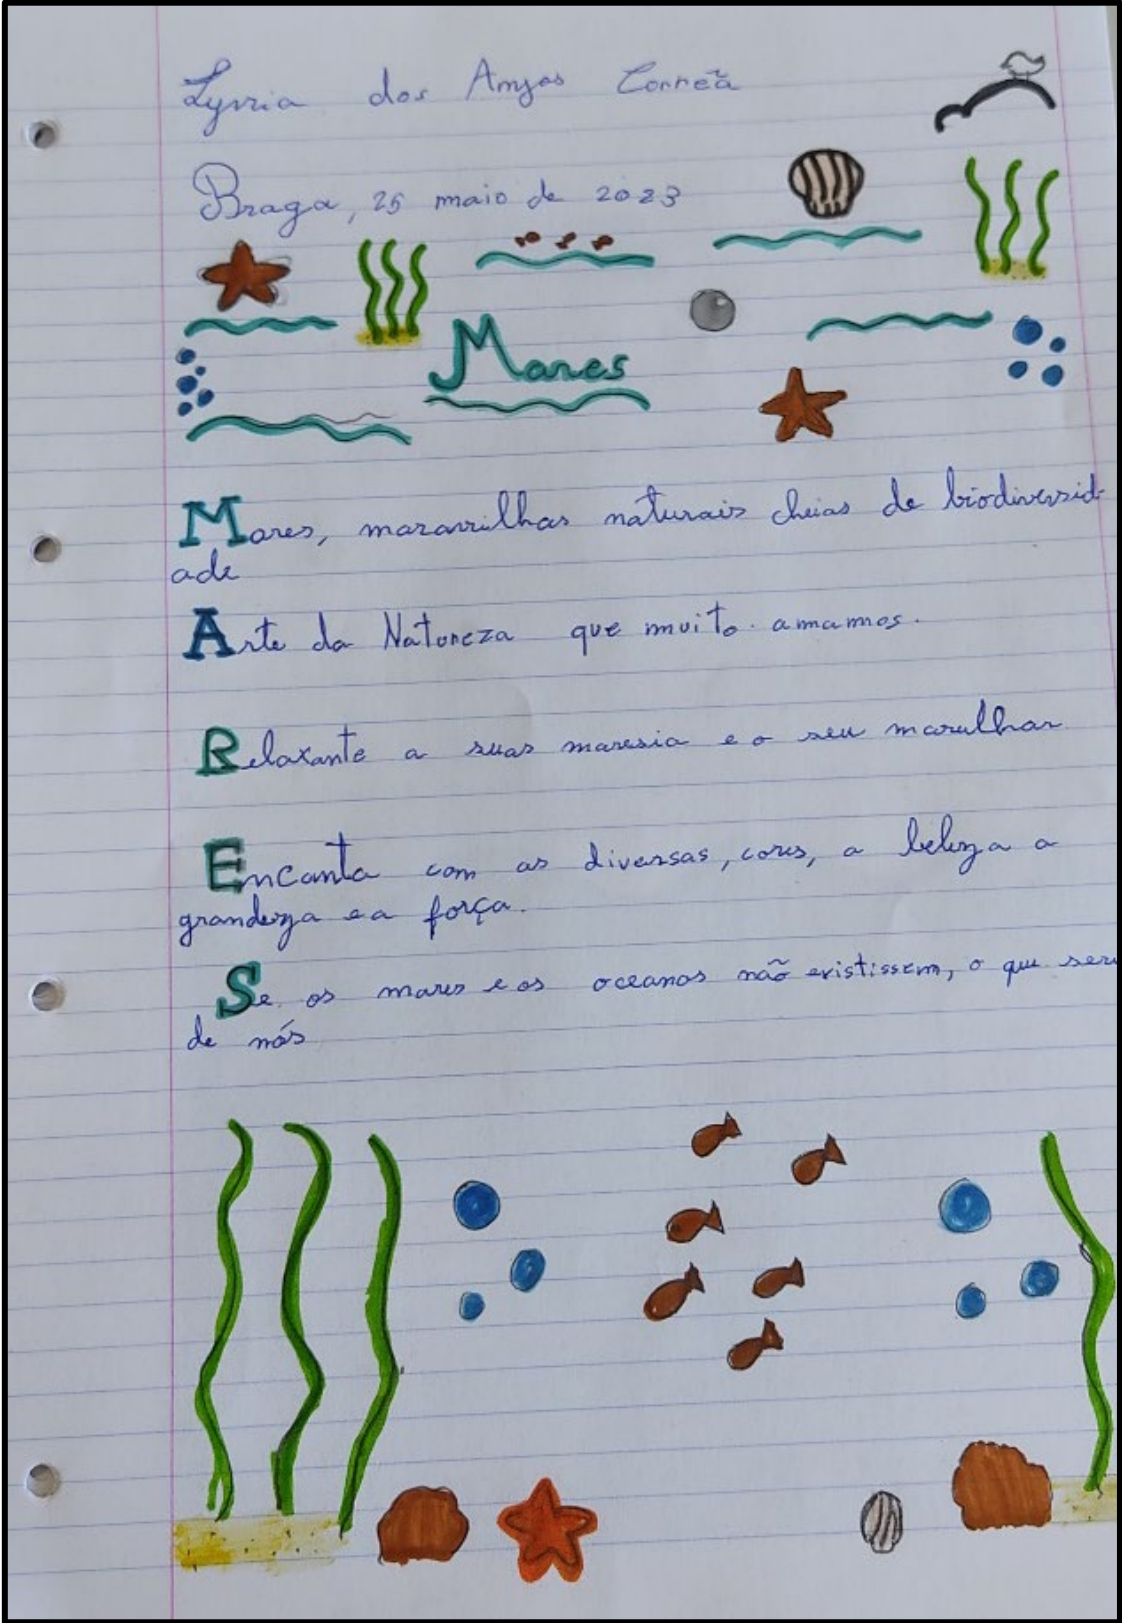 Lyvia dos Anjos Correã
Braga, 25 maio de 2023
Mares
Mares, maravilhas naturais cheias de biodiversid-
ade
Arte da Natureza que muito amamos.
Relaxante a suas maresia e o seu marulhar
Encanta com as diversas, cores, a beleza a
grandeza e a força.
Se os mares e os oceanos não existissem, o que seri
de nós